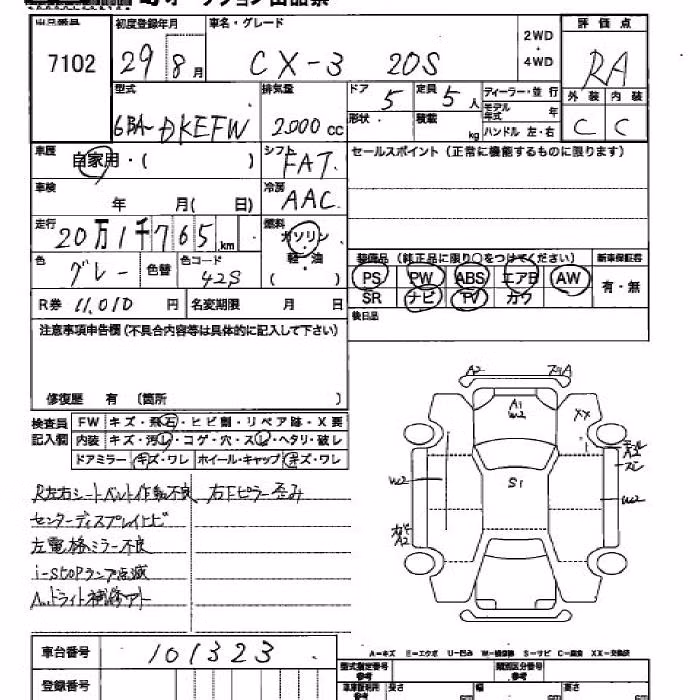 出品番号 初度登録年月 車名・グレード 2WD・4WD 評価点
7102 29 8月 CX-3 20S RA
型式 排気量 ドア 定員 ディーラー・並行 外装 内装
6BA-DKEFW 2000cc 5 5人 モデル年式 年 C C
形状 積載 kg ハンドル 左・右
車歴 自家用・( ) シフト FAT. セールスポイント(正常に機能するものに限ります)
車検 年 月( 日) 冷房 AAC
走行 20万1千765km 燃料 ガソリン・軽・油 ( )
装備品(純正品に限り○をつけてください) 新車保証書
色 グレー 色替 色コード 42S PS PW ABS エアB AW 有・無
R券 11,010円 名変期限 月 日 SR ナビ TV カワ
注意事項申告欄(不具合内容等は具体的に記入して下さい) 後日品
修復歴 有 〔箇所
検査員記入欄 FW キズ・飛石・ヒビ割・リペア跡・X要
内装 キズ・汚レ・コゲ・穴・スレ・ヘタリ・破レ
ドアミラー キズ・ワレ ホイール・キャップ キズ・ワレ
R左右シートベルト作動不良 右Fピラー歪み
センターディスプレイトビ
左電格ミラー不良
i-STOPランプ点滅
ヘッドライト補修アト
A2
A1
W2
XX
S1
W2
W2
A2
A2
A-キズ E-エクボ U-凹み W-補修跡 S-サビ C-腐食 XX-交換済
車台番号 101323
登録番号 型式指定番号 参考 類別区分番号 参考
長さ cm 幅 cm 高さ cm